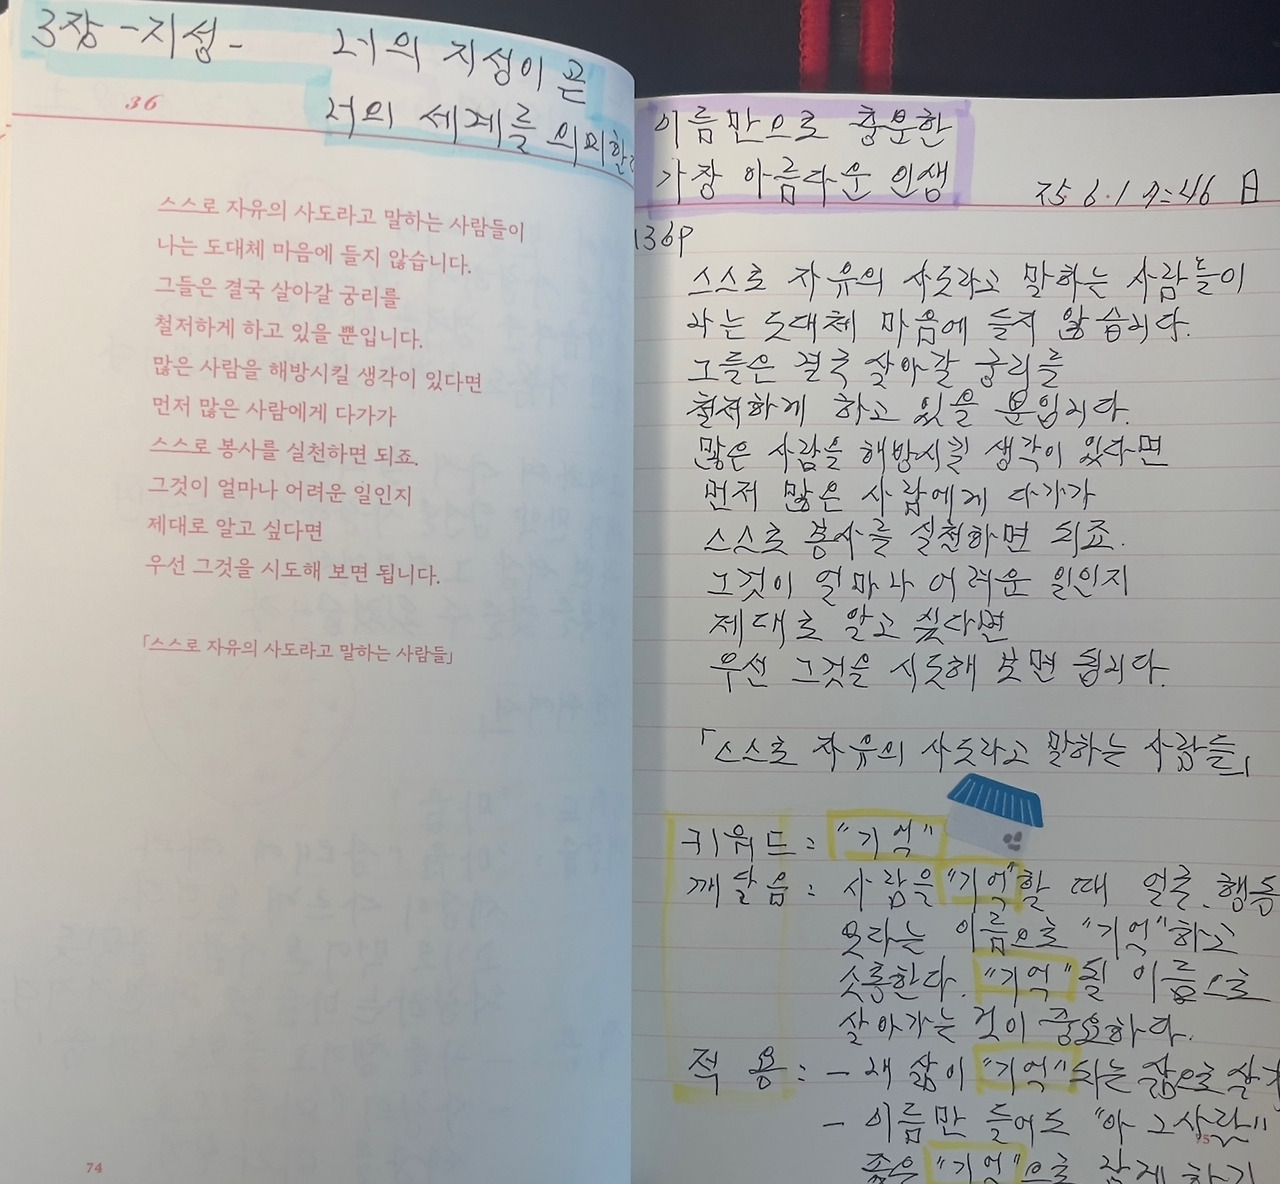 3장 - 지성 - 너의 지성이 곧
너의 세계를 의미한다
36
스스로 자유의 사도라고 말하는 사람들이
나는 도대체 마음에 들지 않습니다.
그들은 결국 살아갈 궁리를
철저하게 하고 있을 뿐입니다.
많은 사람을 해방시킬 생각이 있다면
먼저 많은 사람에게 다가가
스스로 봉사를 실천하면 되죠.
그것이 얼마나 어려운 일인지
제대로 알고 싶다면
우선 그것을 시도해 보면 됩니다.
「스스로 자유의 사도라고 말하는 사람들」
74
이름만으로 충분한
가장 아름다운 인생
25.6.1 7:46 日
136p
스스로 자유의 사도라고 말하는 사람들이
나는 도대체 마음에 들지 않습니다.
그들은 결국 살아갈 궁리를
철저하게 하고 있을 뿐입니다.
많은 사람을 해방시킬 생각이 있다면
먼저 많은 사람에게 다가가
스스로 봉사를 실천하면 되죠.
그것이 얼마나 어려운 일인지
제대로 알고 싶다면
우선 그것을 시도해 보면 됩니다.
「스스로 자유의 사도라고 말하는 사람들」
키워드 : "기억"
깨달음 : 사람을 "기억"할 때 얼굴, 행동
보다는 이름으로 "기억"하고
소통한다. "기억"될 이름으로
살아가는 것이 중요하다.
적용 : - 내 삶이 "기억"되는 삶으로 살기
- 이름만 들어도 "아 그사람"
75
좋은 "기억"으로 남게 하기